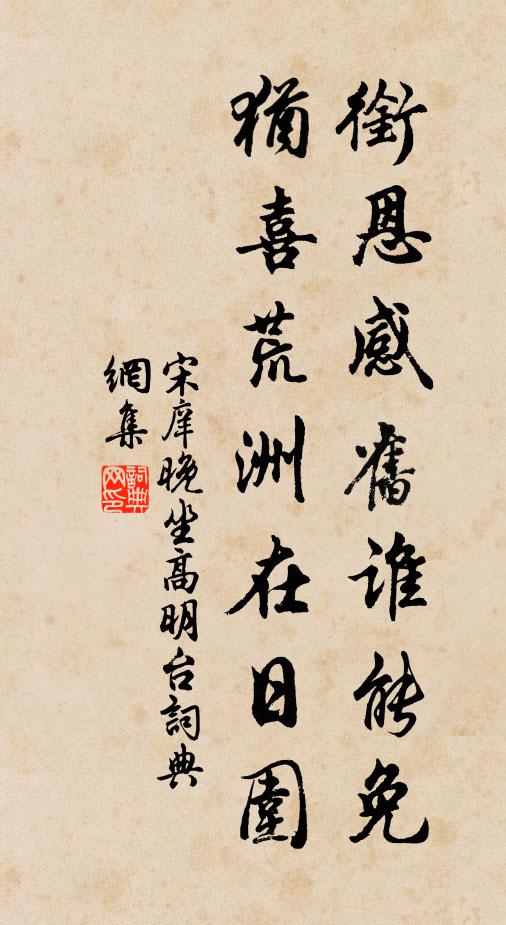 銜恩感舊誰能免
猶喜荒洲在日圍
宋庠晚坐高明台詞典
網集
詞典
网印